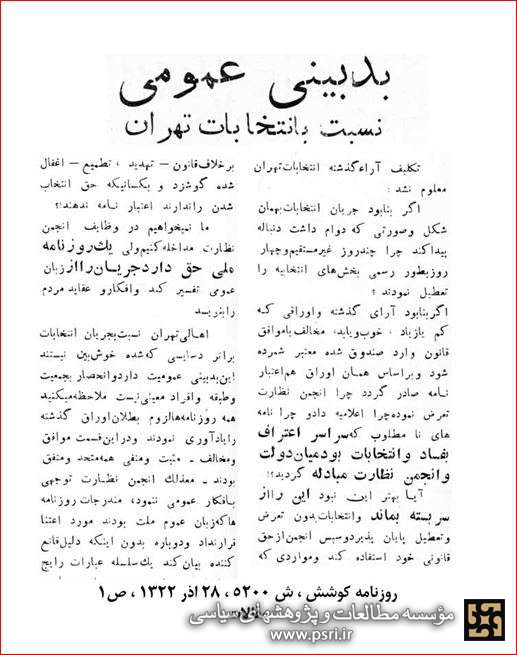 بدبینی عمومی
نسبت بانتخابات تهران
تکلیف آراء گذشته انتخابات تهران
معلوم نشد :
اگر بنابود جریان انتخابات بهمان
شکل وصورتی که دوام داشت دنباله
پیدا کند چرا چند روز غیر مستقیم و چهار
روز بطور رسمی بخش‌های انتخابیه را
تعطیل نمودند ؟
اگر بنابود آرای گذشته و اوراقی که
کم یا زیاد ، خوب و یابد ، مخالف یا موافق
قانون وارد صندوق شده معتبر شمرده
شود و براساس همان اوراق هم اعتبار
نامه صادر گردد چرا انجمن نظارت
تعرض نموده چرا اعلامیه داد و چرا نامه
های نا مطلوب که سراسر اعتراف
بفساد و انتخابات بود میان دولت
و انجمن نظارت مبادله گردید؟!
آیا بهتر این نبود این راز
سر بسته بماند و انتخابات بدون تعرض
و تعطیل پایان پذیرد و سپس انجمن از حق
قانونی خود استفاده کند و مواردی که
برخلاف قانون – تهدید ، تطمیع – اغفال
شده گوشزد و بکسانیکه حق انتخاب
شدن را ندارند اعتبار نامه ندهند؟!
ما نمیخواهیم در وظایف انجمن
نظارت مداخله کنیم ولی یک روزنامه
ملی حق دارد جریان را از زبان
عمومی تفسیر کند و افکار و عقاید مردم
را بنویسد
اهالی تهران نسبت بجریان انتخابات
براثر دسایسی که شده خوش بین نیستند
این بدبینی عمومیت دارد و انحصار بجمعیت
و طبقه و افراد معینی نیست ملاحظه میکنید
همه روزنامه‌ها لزوم بطلان اوراق گذشته
را یادآوری نمودند و در این قسمت موافق
و مخالف ـ مثبت و منفی همه متحد و متفق
بودند ـ معذلک انجمن نظارت توجهی
بافکار عمومی ننمود، مندرجات روزنامه
ها که زبان عموم ملت بودند مورد اعتنا
قرار نداد و دوباره بدون اینکه دلیل قانع
کننده بیان کند یک سلسله عبارات رایج
روزنامه کوشش ، ش ۵۲۰۰ ، ۲۸ آذر ۱۳۲۲ ، ص ۱
مؤسسه مطالعات و پژوهشهای سیاسی
www.psri.ir